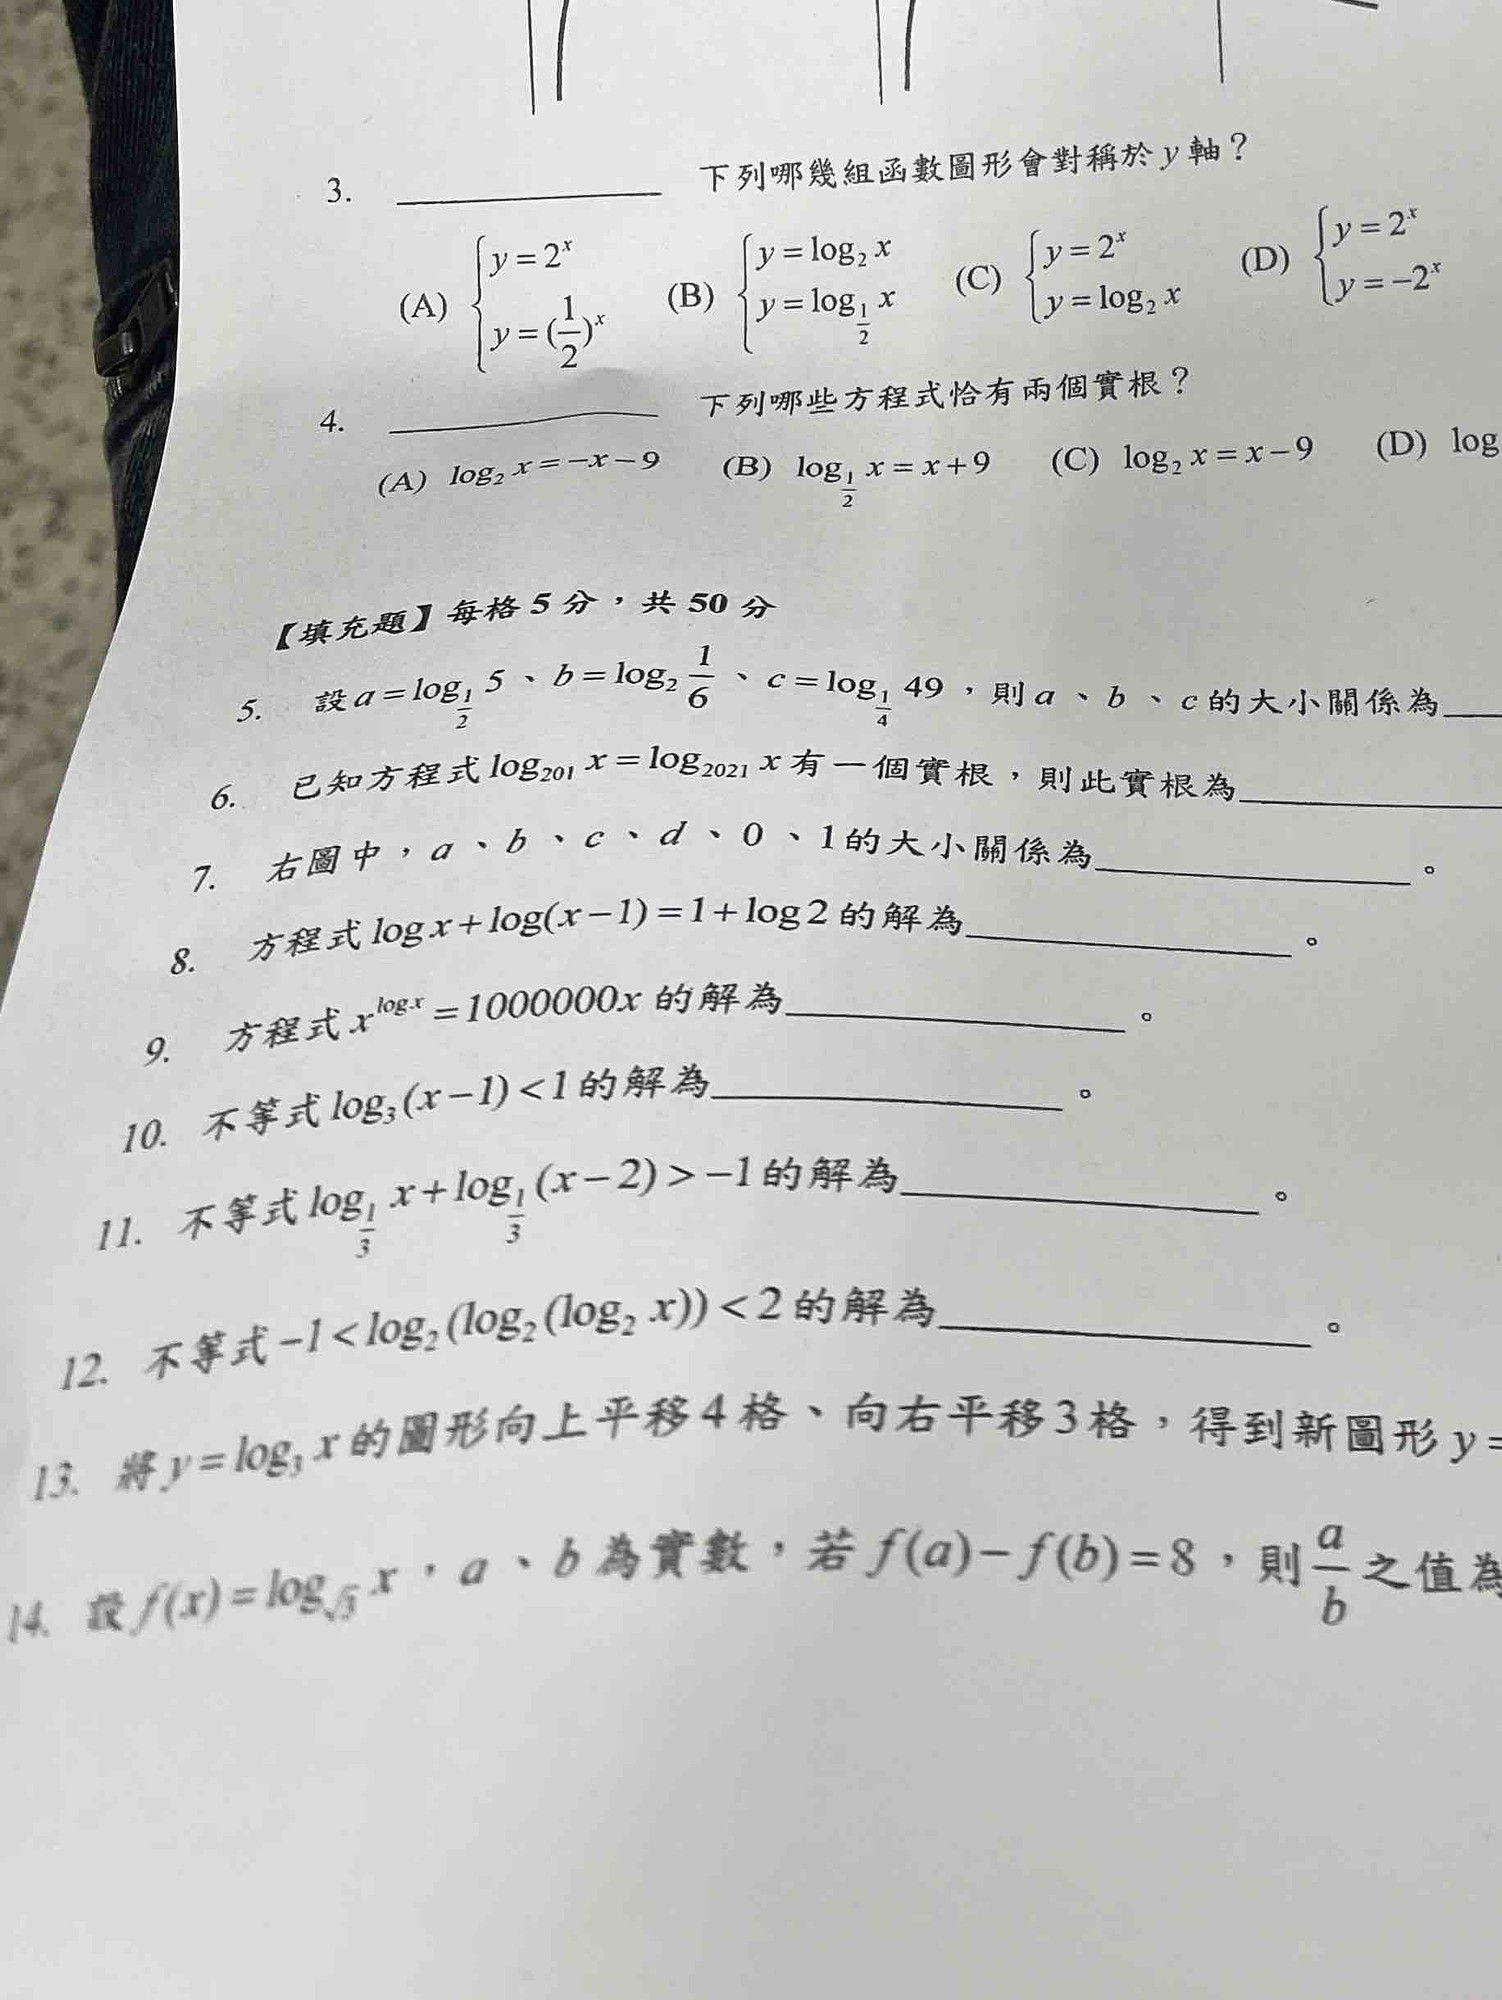 3. ________ 下列哪幾組函數圖形會對稱於 y 軸？
(A) { y = 2^x , y = (1/2)^x (B) { y = log_2 x , y = log_{1/2} x (C) { y = 2^x , y = log_2 x (D) { y = 2^x , y = −2^x
4. ________ 下列哪些方程式恰有兩個實根？
(A) log_2 x = −x − 9 (B) log_{1/2} x = x + 9 (C) log_2 x = x − 9 (D) log
【填充題】每格 5 分，共 50 分
5. 設 a = log_{1/2} 5、b = log_2 1/6、c = log_{1/4} 49，則 a、b、c 的大小關係為____
6. 已知方程式 log_{201} x = log_{2021} x 有一個實根，則此實根為________
7. 右圖中，a、b、c、d、0、1的大小關係為________。
8. 方程式 log x + log(x−1) = 1 + log 2 的解為________。
9. 方程式 x^{log x} = 1000000x 的解為________。
10. 不等式 log_3 (x−1) < 1 的解為________。
11. 不等式 log_{1/3} x + log_{1/3} (x−2) > −1 的解為________。
12. 不等式 −1 < log_2 (log_2 (log_2 x)) < 2 的解為________。
13. 將 y = log_3 x 的圖形向上平移 4 格、向右平移 3 格，得到新圖形 y =
14. 設 f(x) = log_{√3} x，a、b 為實數，若 f(a) − f(b) = 8，則 a/b 之值為